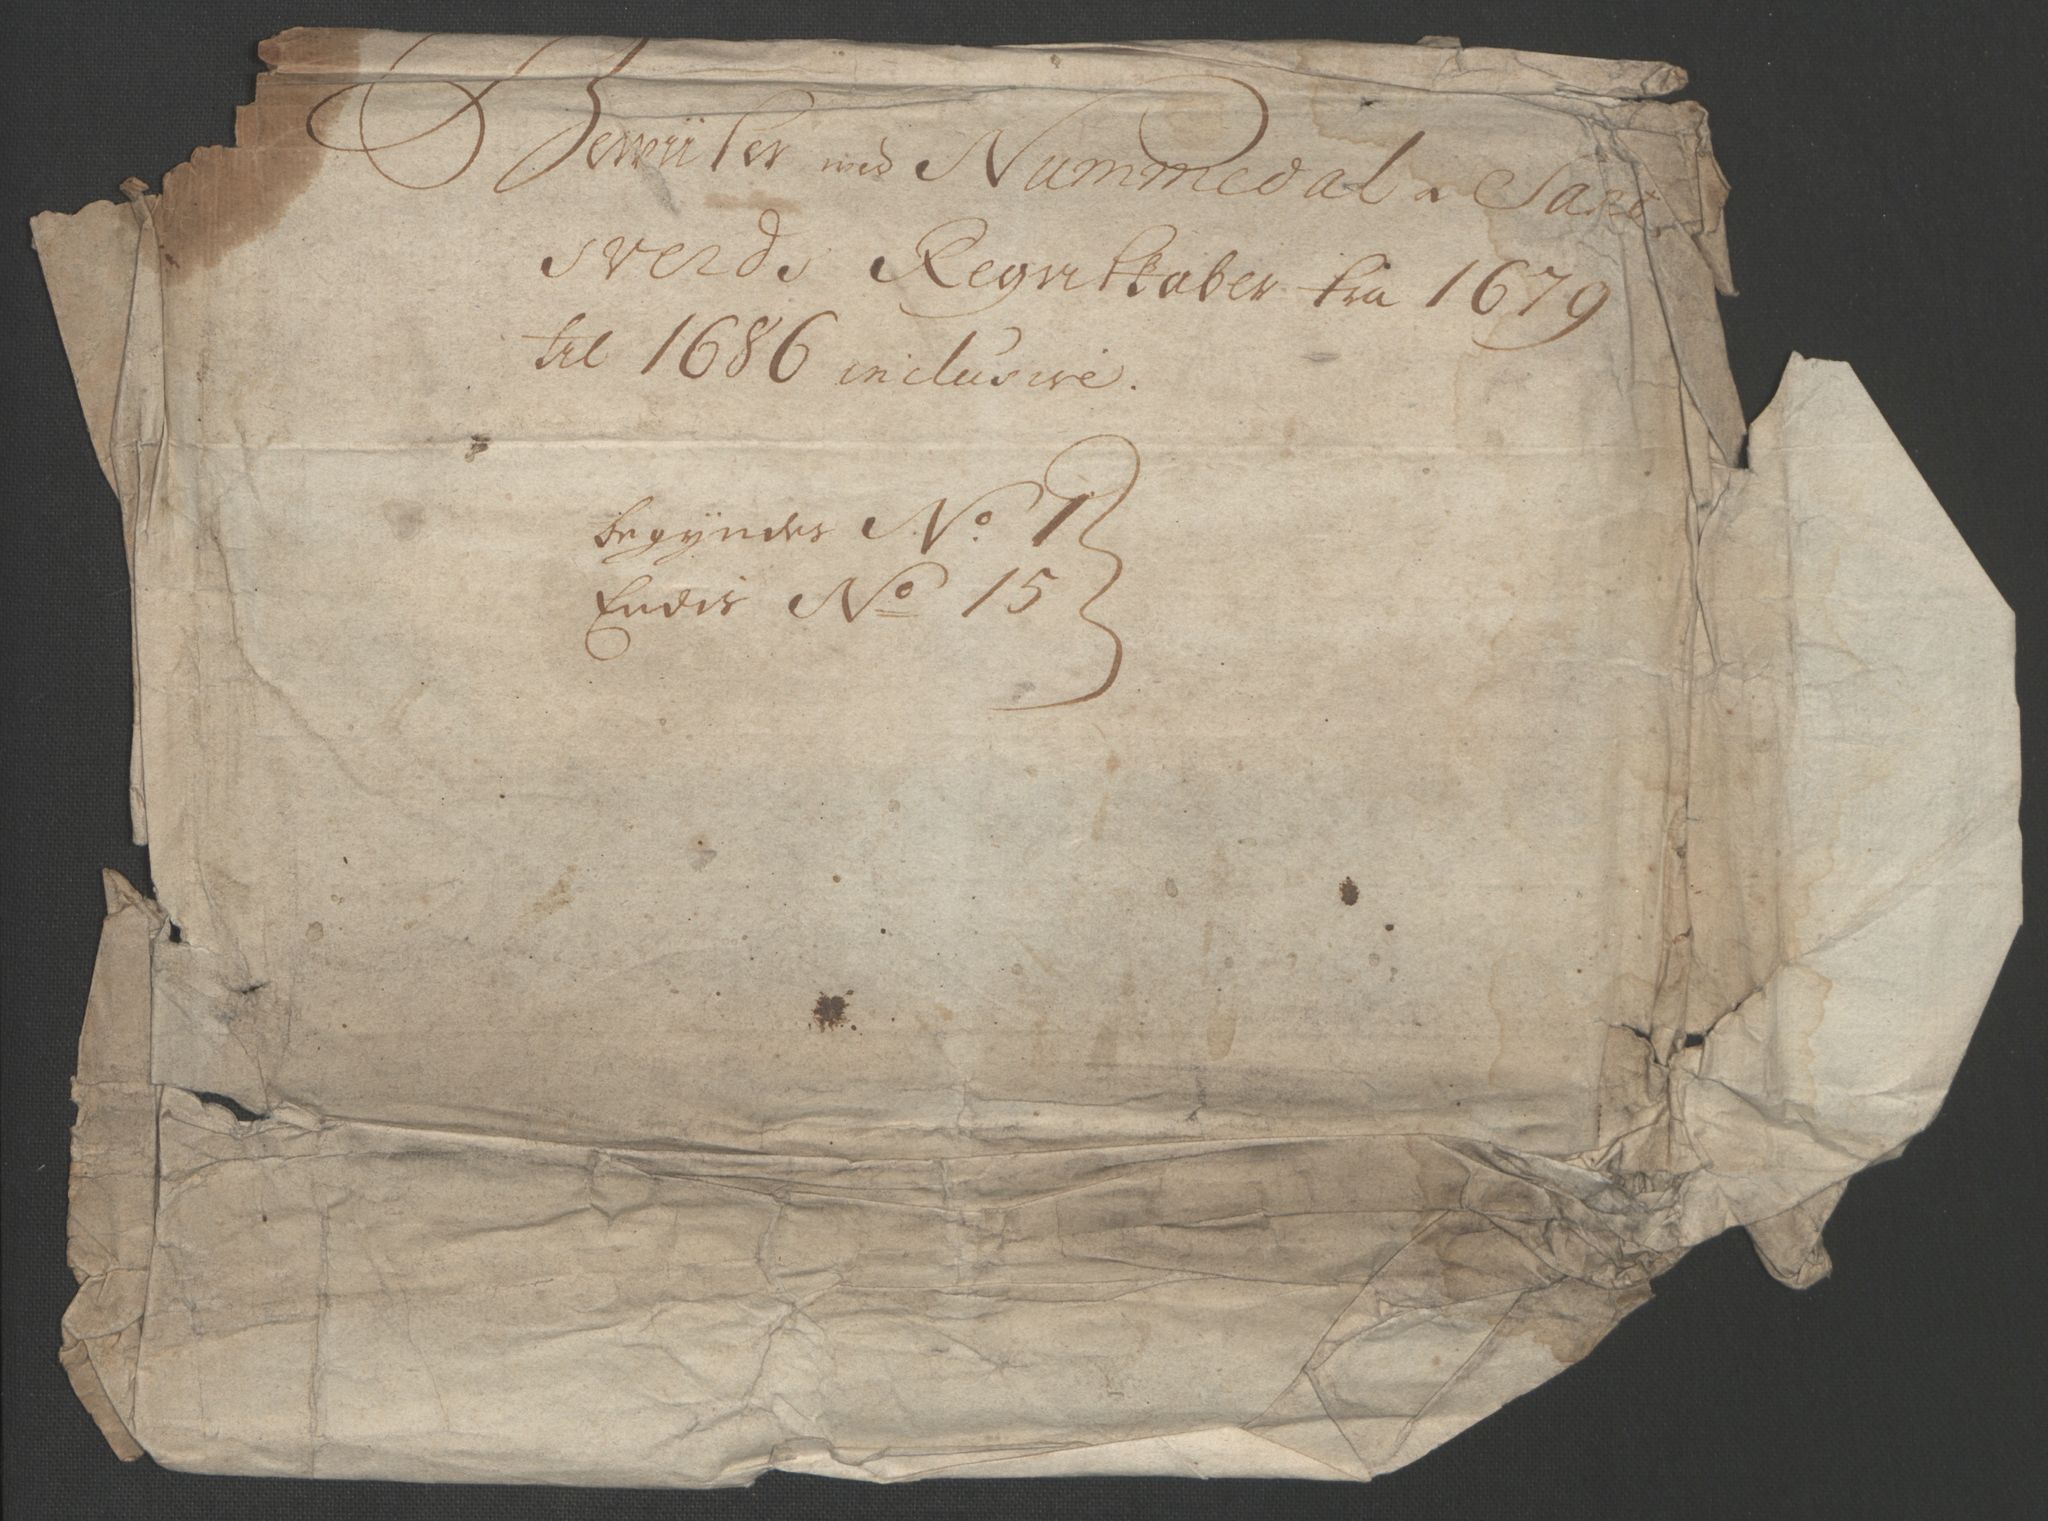 Bewiiser med Nummedal & Sand
sverds Regnskaber fra 1679
til 1686 inclusive.
begyndes No. 1
Endis No 15